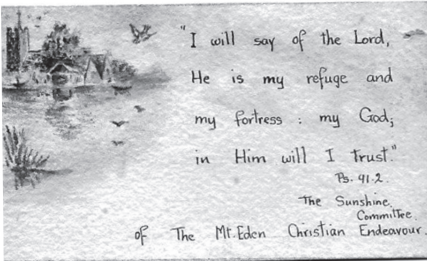 "I will say of the Lord,
He is my refuge and
my fortress : my God;
in Him will I trust."
Ps. 91.2.
The Sunshine
Committee
of The Mt. Eden Christian Endeavour.